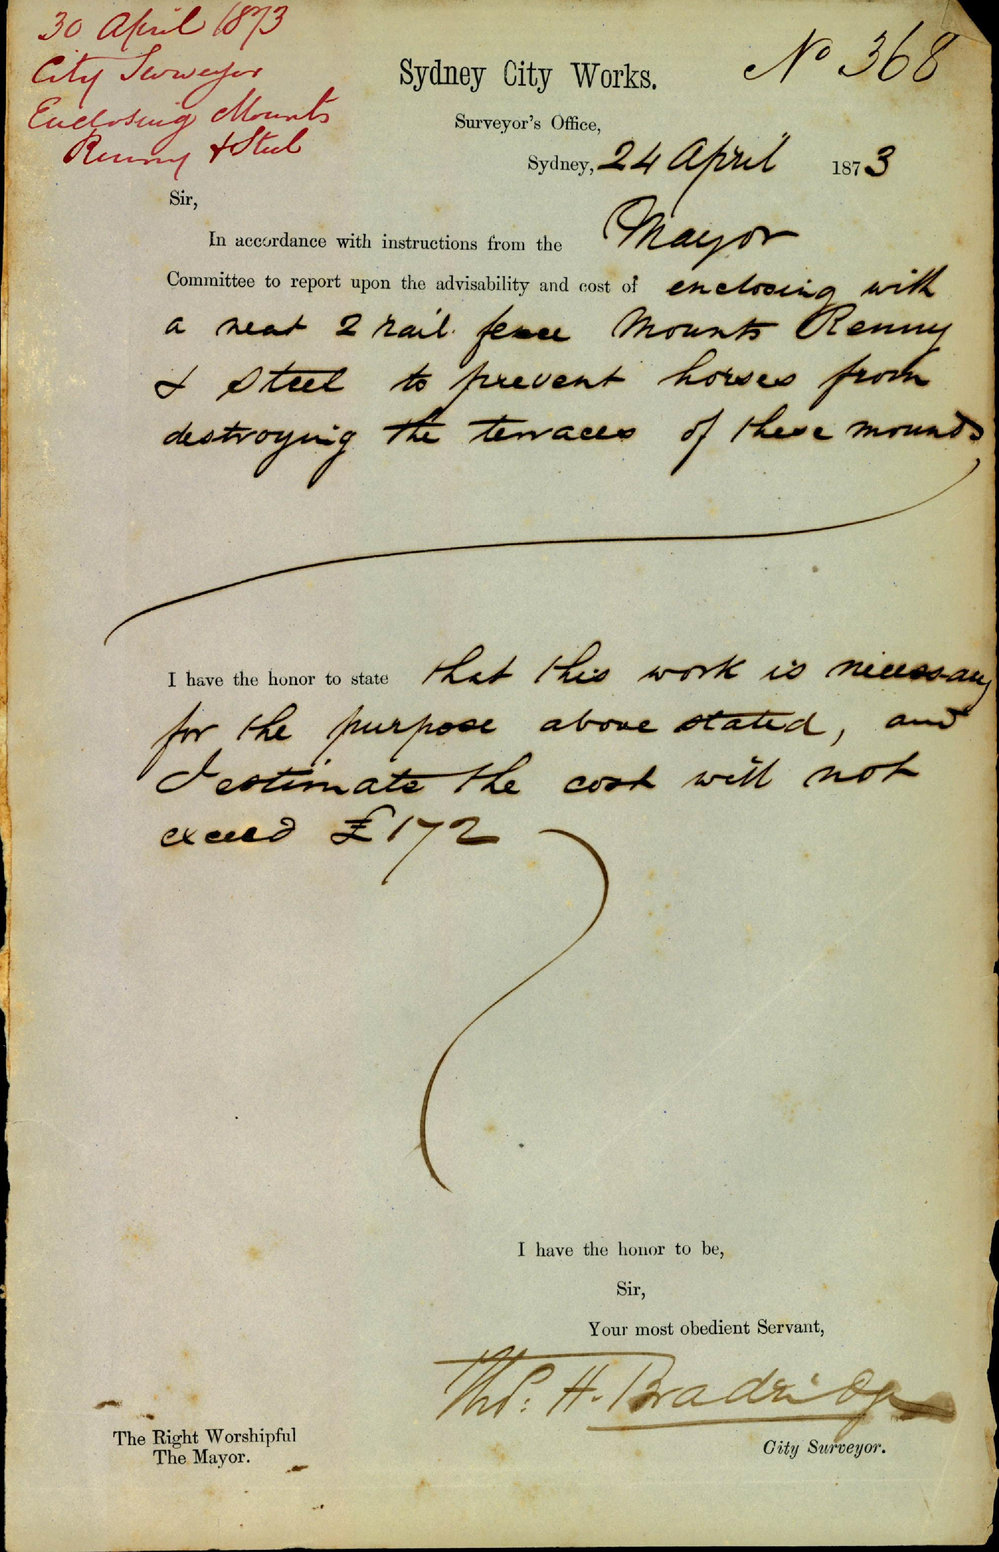 30 April 1873
City Surveyor
Enclosing Mounts
Renny & Steel
Sydney City Works.
No 368
Surveyor's Office,
Sydney, 24 April 1873
Sir,
In accordance with instructions from the Mayor
Committee to report upon the advisability and cost of enclosing with
a neat 2 rail fence Mounts Renny
& Steel to prevent horses from
destroying the terraces of these mounds
I have the honor to state that this work is necessary
for the purpose above stated, and
I estimate the cost will not
exceed £172
I have the honor to be,
Sir,
Your most obedient Servant,
Thos. H. Bradridge
City Surveyor.
The Right Worshipful
The Mayor.